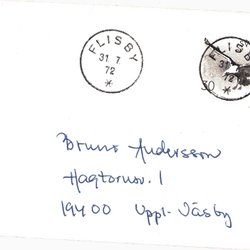 FLISBY
31. 7.
72
*
FLISB
31.
72
*
50
Bruno Andersson
Hagtornsv. 1
194 00 Uppl-Väsby